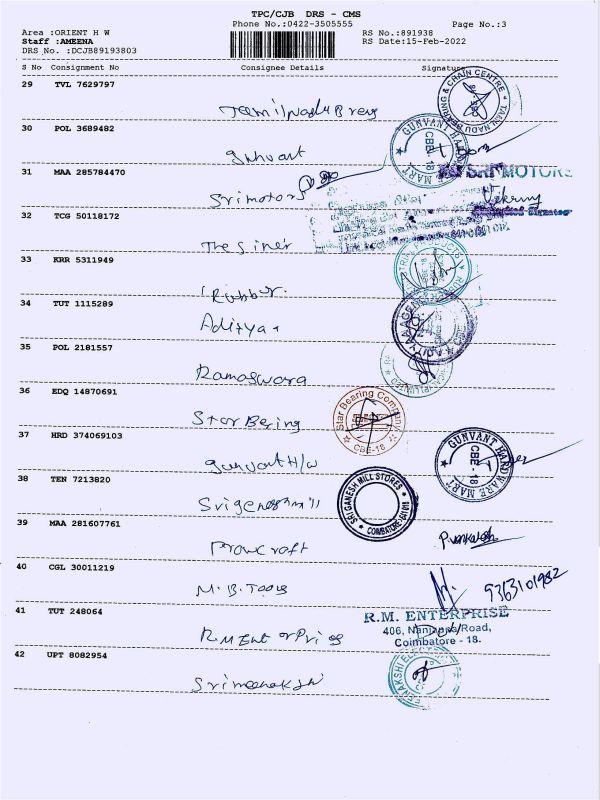 TPC/CJB DRS - CMS
Phone No.:0422-3505555
Page No.:3
Area :ORIENT H W
Staff :AMEENA
DRS No. :DCJB89193803
RS No.:891938
RS Date:15-Feb-2022
S No Consignment No Consignee Details Signature
29 TVL 7629797
Tamilnadu Breng
TAMILNADU BEARING & CHAIN CENTRE
30 POL 3689482
gunvant
GUNVANT HARDWARE MART
CBE-18
31 MAA 285784470
Sri motors
SRI MOTORS
32 TCG 50118172
The Siner
33 KRR 5311949
Rubber.
34 TUT 1115289
Aditya
35 POL 2181557
Ramaswara
36 EDQ 14870691
Star Bering
Star Bearing Company
CBE-18
37 HRD 374069103
gunvant H/w
GUNVANT HARDWARE MART
CBE-18
38 TEN 7213820
Sri ganesh mill
SRI GANESH MILL STORES
COIMBATORE 641 018
39 MAA 281607761
Prowcraft
P. venkatesh
40 CGL 30011219
M. B. Tools
9363101982
41 TUT 248064
R.M Enterprises
R.M. ENTERPRISE
406, Nanjappa Road,
Coimbatore - 18.
42 UPT 8082954
Srimeenakshi